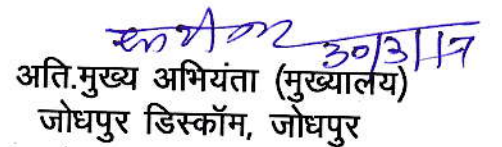 30/3/17
अति.मुख्य अभियंता (मुख्यालय)
जोधपुर डिस्कॉम, जोधपुर